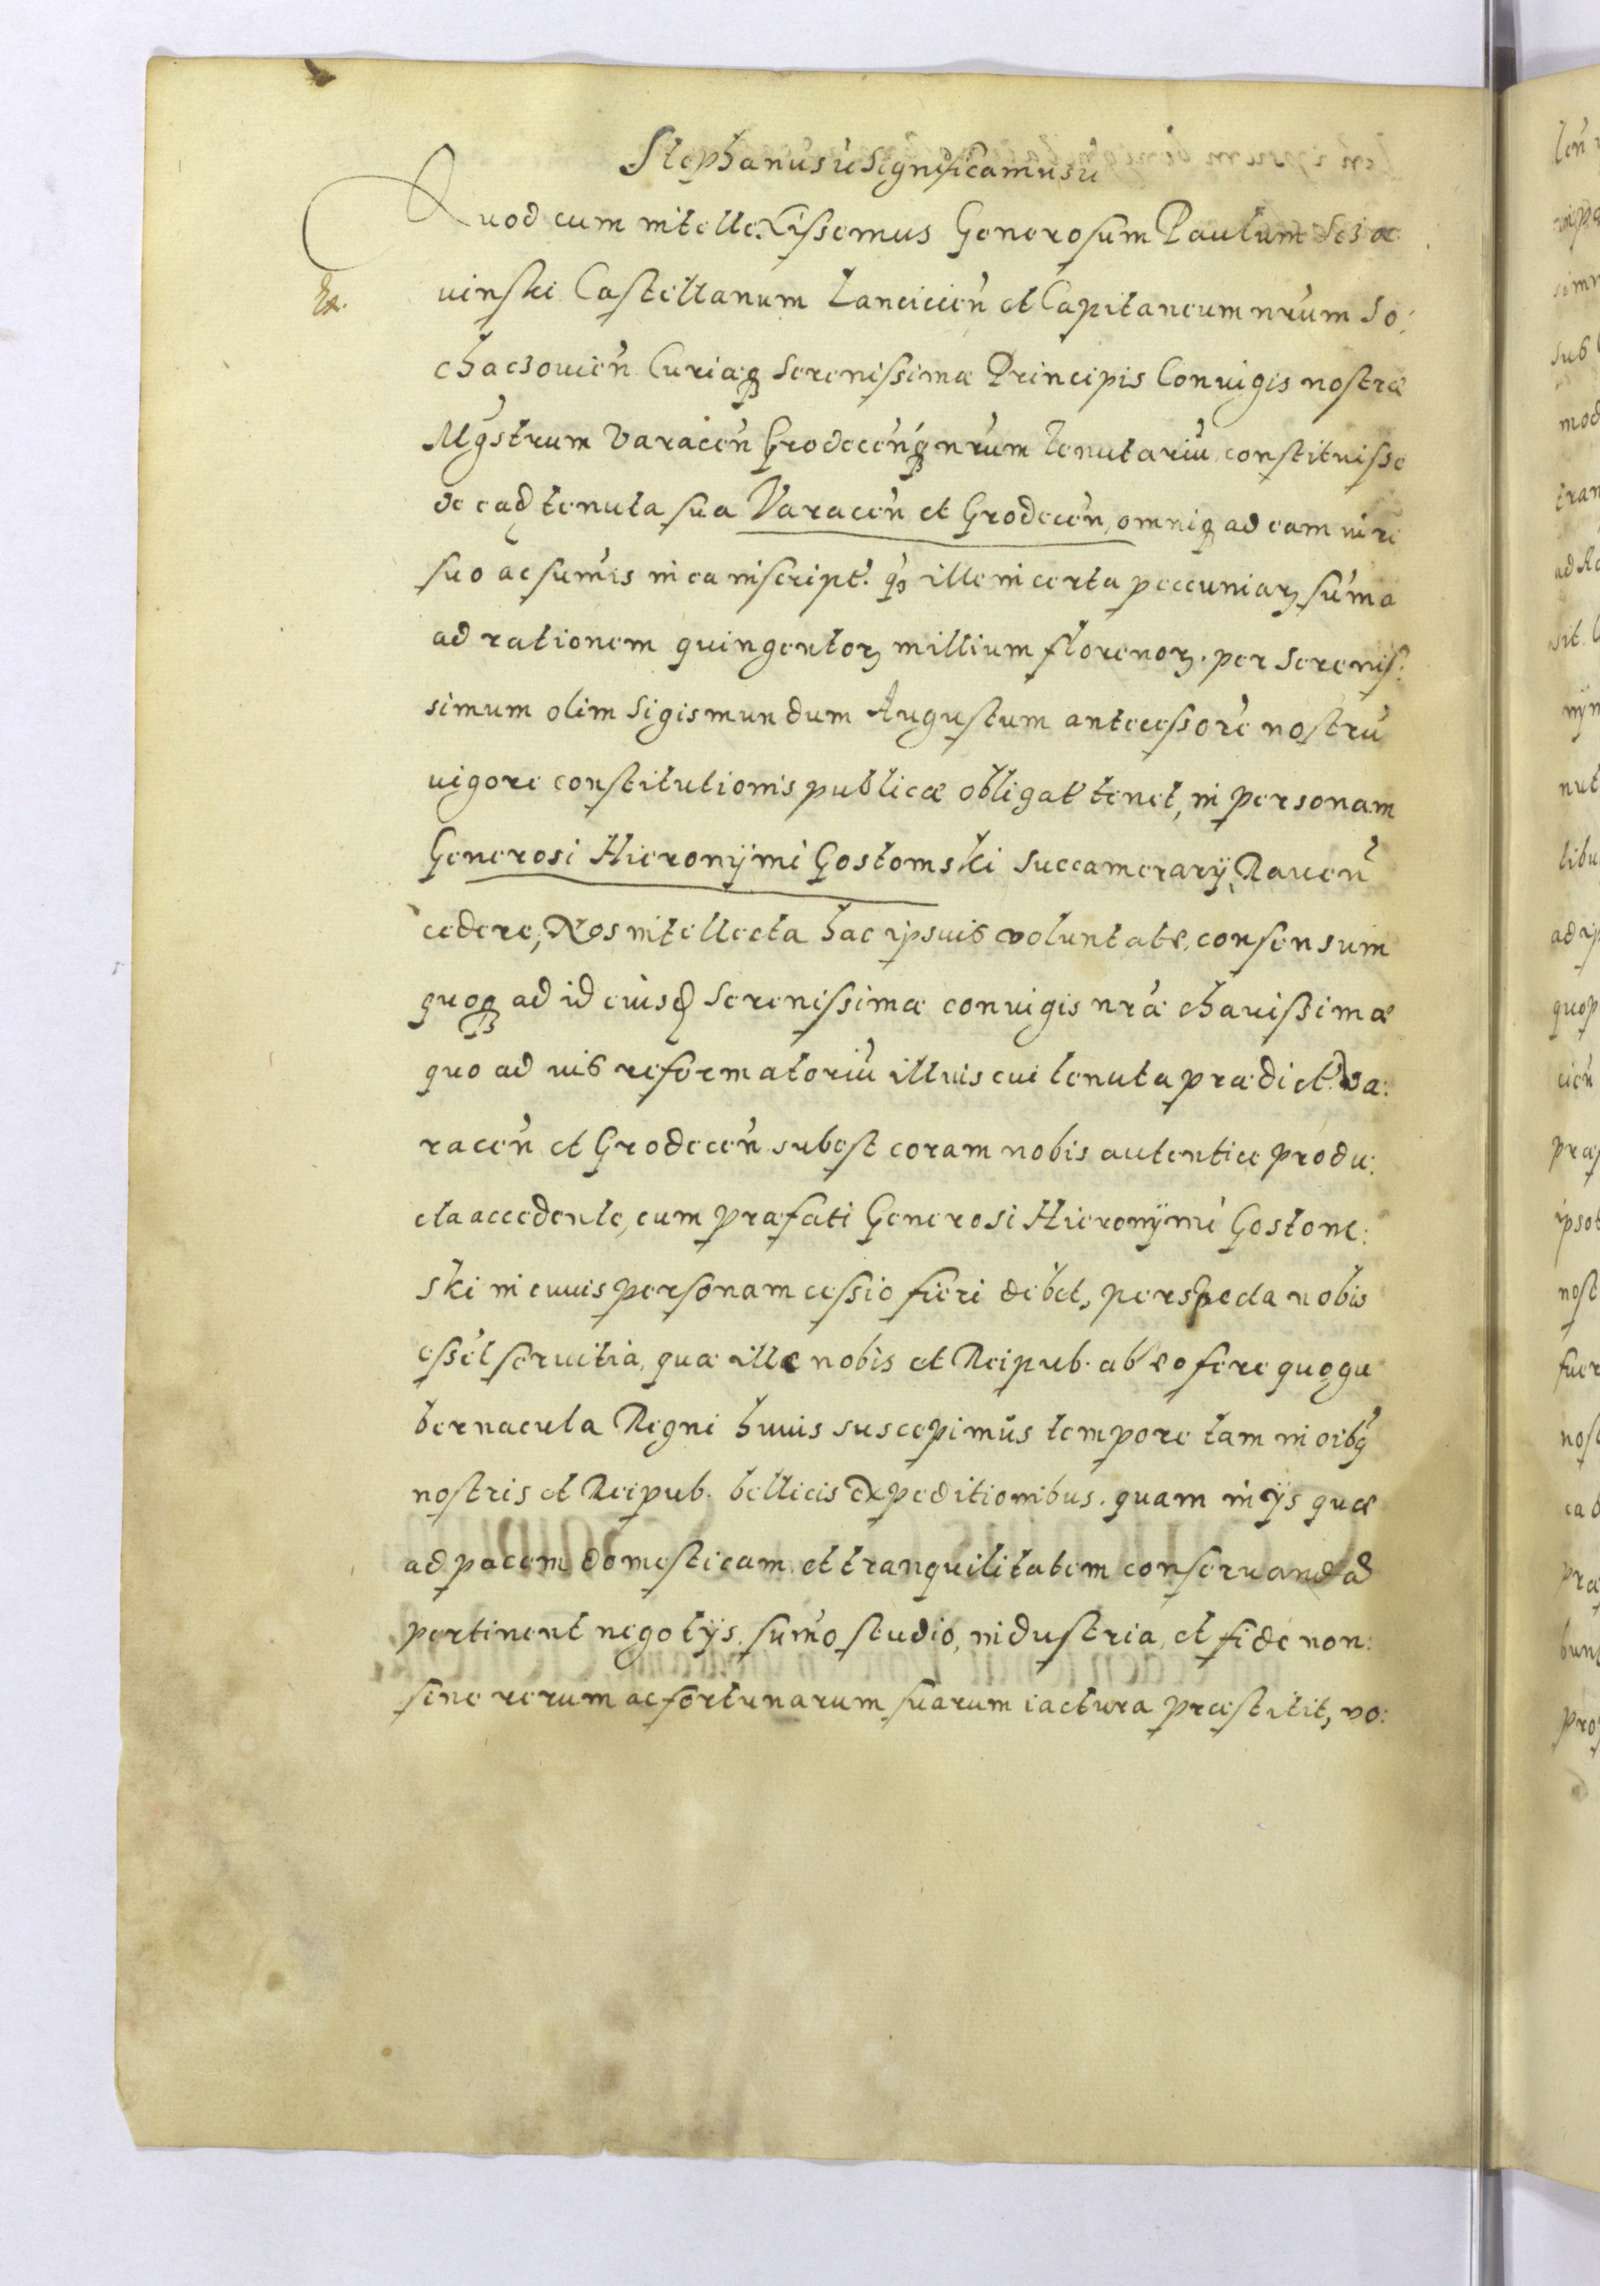 Stephanus ũ Significamus ũ
Quod cum intellexissemus Generosum Paulum Scza
uinski Castellanum Lancicień et Capitaneum nrũm So:
chaczouień Curiæq₃ Serenissimæ Principis Coniugis nostræ
Mgs̃trum Varaceń Grodeceńq₃ nrũm tenutariũ, constituisse
de eaḍ tenuta sua Varaceń et Grodeceń, omniq₃ ad eam iure
suo ac sum̃is in ea inscript. ille in certa peccuniaꝝ sum̃a
ad rationem quingentoꝝ millium florenoꝝ. per Serenis:
simum olim Sigismundum Augustum antecessorẽ nostrũ
uigore constitutionis publicæ obligat tenet, in personam
Generosi Hieronÿmi Gostomski Succamerarÿ Raueń
cedere, Nos intellecta hac ipsius voluntate, consensum
quoq₃ ad id eiusḍ Serenissimæ coniugis nrã̃e charissimæ
quo ad ius reformatoriũ illius cui tenuta prædict. Va:
raceń et Grodeceń subest coram nobis autentice produ:
cta accedente, cum præfati Generosi Hieronÿmi Gostom:
ski in cuius personam cessio fieri debet, perspecta nobis
esset seruitia, quæ ille nobis et Reipub. ab eo fere quo gu
bernacula Regni huius suscepimus tempore tam in oib₉
nostris et Reipub. bellicis expeditionibus. quam in ÿs quæ
ad pacem domesticam et tranquilitatem conseruandã
pertinent negotÿs, sum̃o studio, industria, et fide non
sine rerum ac fortunarum suarum iactura præstitit, vo: